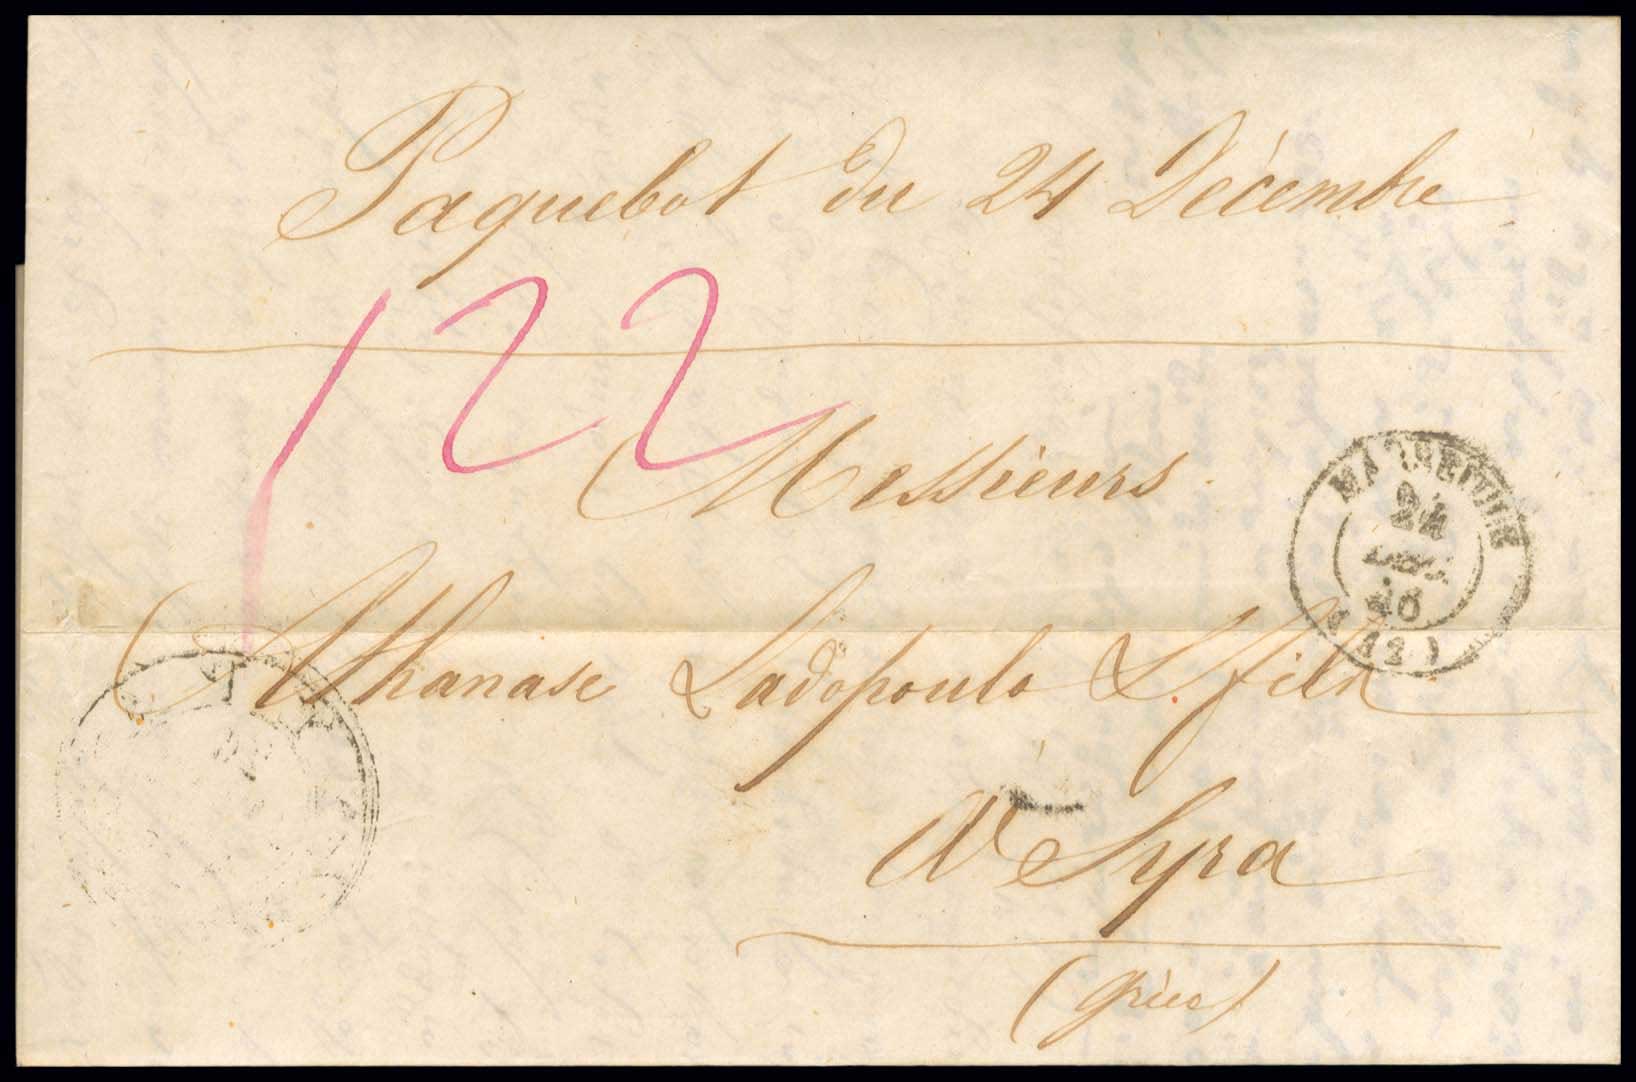 Paquebot du 24 Décembre
122
Messieurs
Athanase Ladopoulo & fils
A Syra
(Grèce)
MARSEILLE
24
(12)